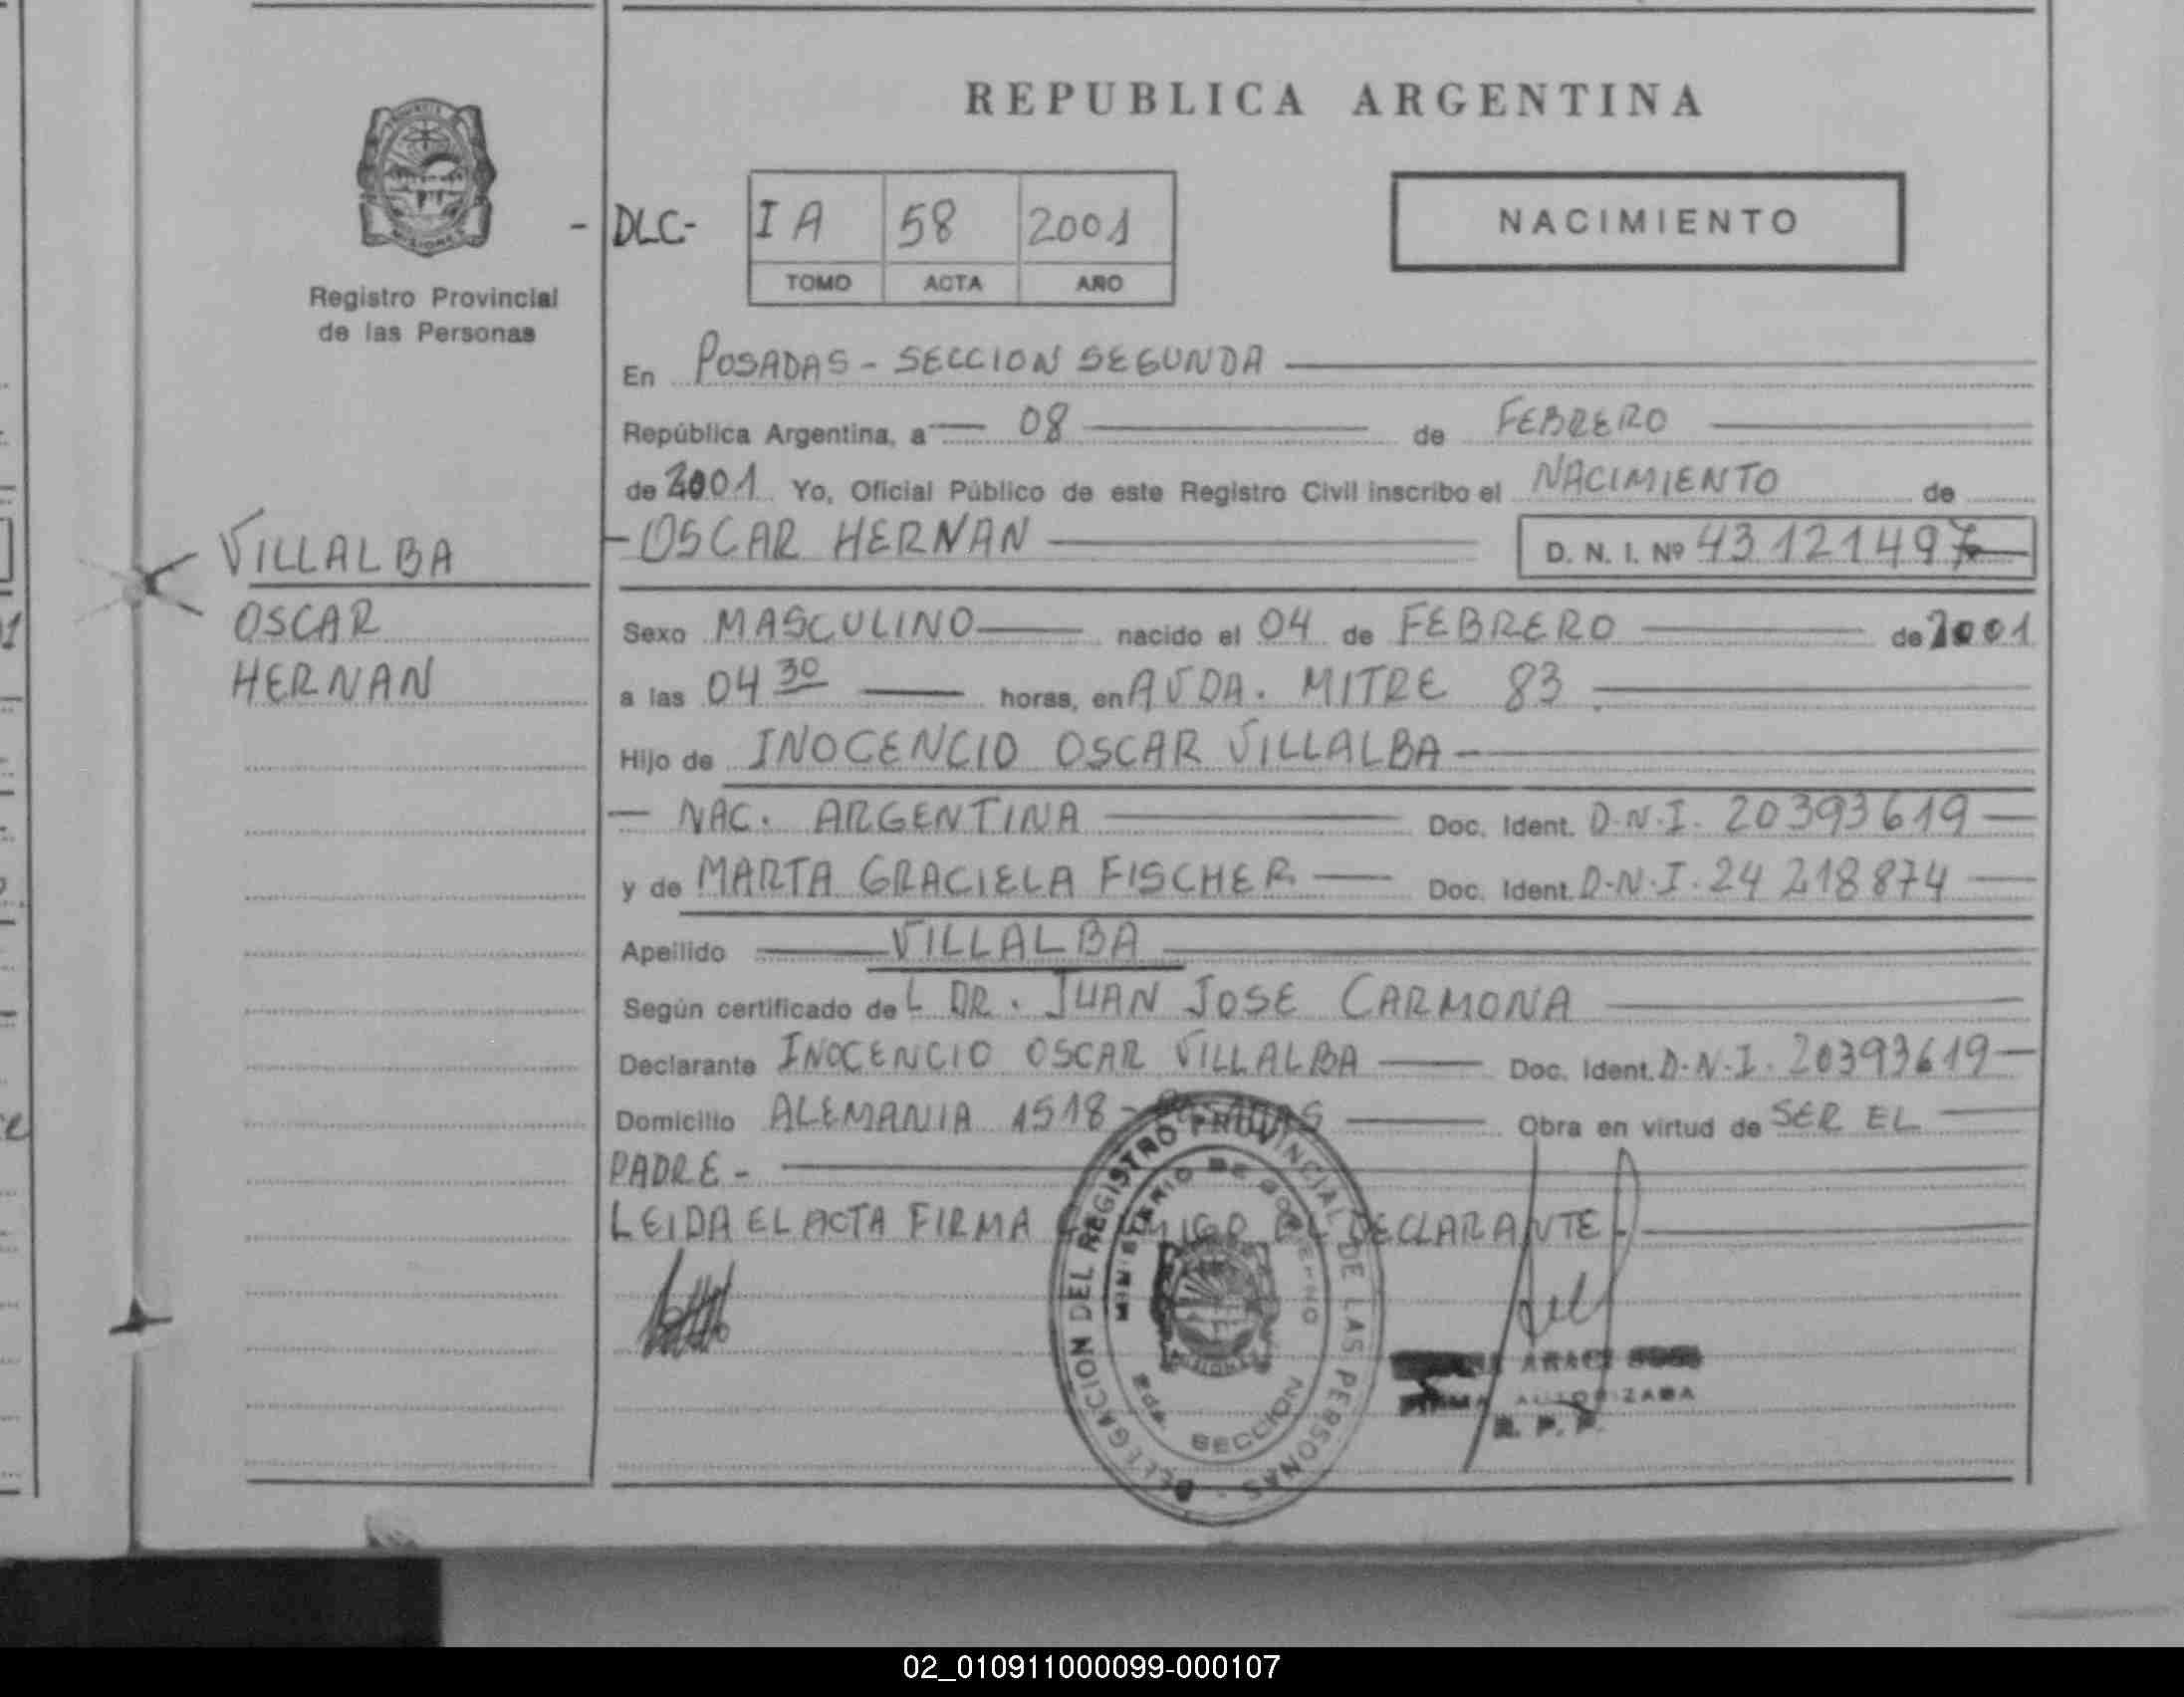 REPUBLICA ARGENTINA
Registro Provincial
de las Personas
- DLC- I A 58 2001
TOMO ACTA AÑO
NACIMIENTO
En POSADAS - SECCION SEGUNDA
República Argentina, a 08 de FEBRERO
de 2001 Yo, Oficial Público de este Registro Civil inscribo el NACIMIENTO de
- OSCAR HERNAN D. N. I. Nº 43121497
VILLALBA
OSCAR
HERNAN
Sexo MASCULINO nacido el 04 de FEBRERO de 2001
a las 04 30 horas, en AVDA. MITRE 83
Hijo de INOCENCIO OSCAR VILLALBA
NAC. ARGENTINA Doc. Ident. D.N.I. 20393619
y de MARTA GRACIELA FISCHER Doc. Ident. D.N.I. 24 218874
Apellido VILLALBA
Según certificado del DR. JUAN JOSE CARMONA
Declarante INOCENCIO OSCAR VILLALBA Doc. Ident. D.N.I. 20393619
Domicilio ALEMANIA 1518 - POSADAS Obra en virtud de SER EL
PADRE -
LEIDA EL ACTA FIRMA DECLARANTE
DELEGACION DEL REGISTRO PROVINCIAL DE LAS PERSONAS -
MINISTERIO DE GOBIERNO
2da. SECCION
MISIONES
FIRMA AUTORIZADA
R. P. P.
02_010911000099-000107